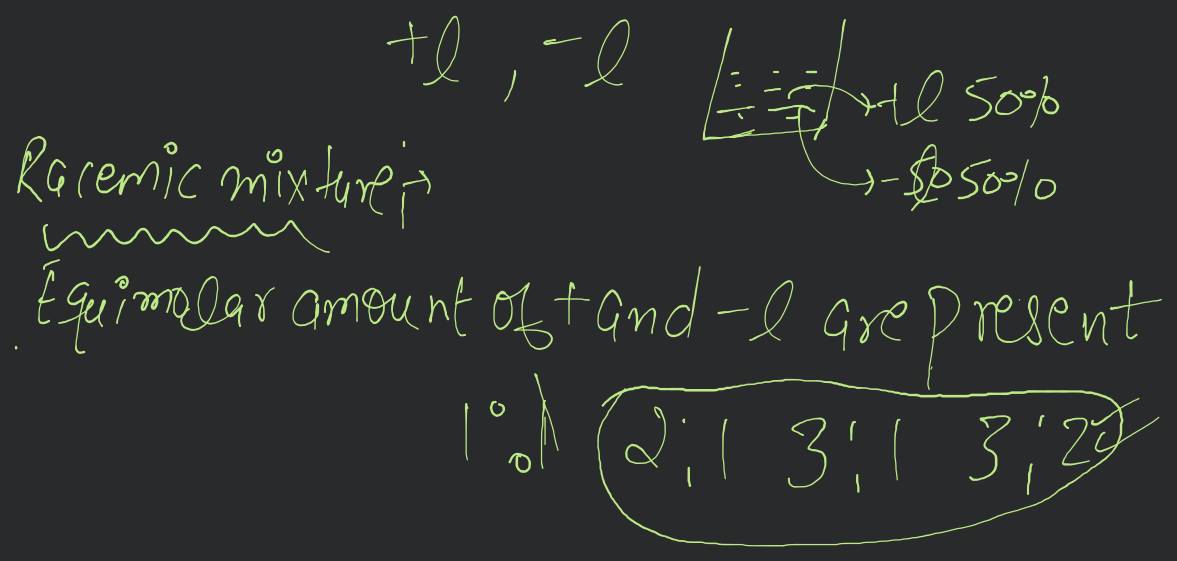 +l , -l
+l 50%
Racemic mixture;→
- 50%
Equimolar amount of + and -l are present
1:1 2:1 3:1 3:2